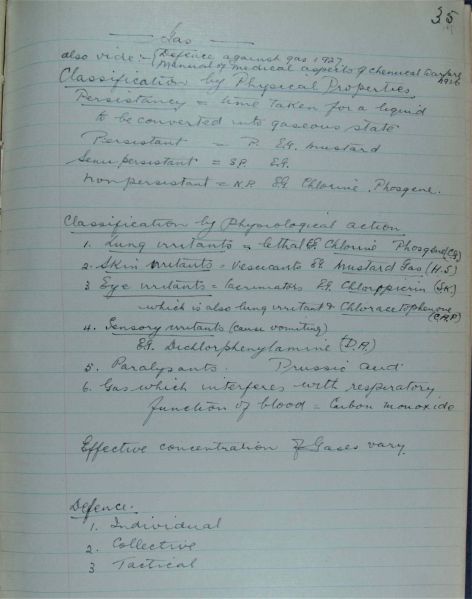 35
Gas
also vide :- { Defence against gas 1927
{ Manual of medical aspects of chemical warfare 1926
Classification by Physical Properties.
Persistancy = time taken for a liquid
to be converted into gaseous state
Persistant = P. E.G. Mustard
Semi persistant = S.P. E.G.
Non persistant = N.P. E.G. Chlorine. Phosgene.
Classification by Physiological action
1. Lung irritants = lethal E.G. Chlorine Phosgene (CG)
2. Skin irritants = Vesicants E.G. Mustard Gas (H.S)
3 Eye irritants = Lacrimators E.G. Chlorpicrin
which is also lung irritant & Chloracetophenone (C.A.P)
4. Sensory irritants (cause vomiting)
E.G. Dichlorphenylamine (D.A)
5. Paralysants. Prussic acid
6. Gas which interferes with respiratory
function of blood = Carbon monoxide
Effective concentration of Gases vary
Defence.
1. Individual
2. Collective
3 Tactical